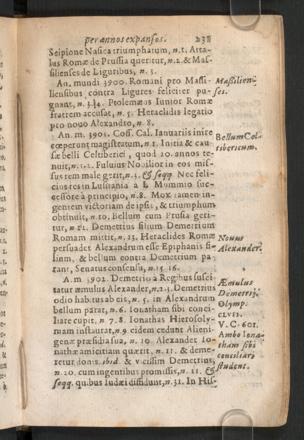 per annos expansos. 238
Scipione Nasica triumphatum, n.1. Atta-
lus Romæ de Prussia queritur, n.2. & Mas-
silienses de Liguribus, n. 3.
An. mundi 3900. Romani pro Massi-
liensibus contra Ligures feliciter pu-
gnant, n. Ptolemæus Iunior Romæ
fratrem accusat, n. 5. Heraclides legatio
pro nouo Alexandro, n. 8.
Massilien-
ses.
An. m. 3901. Coss. Cal. Ianuariis inire
cœperunt magistratum, n. 1. Initia & cau-
sæ belli Celtiberici, quod 10. annos te-
nuit, Fuluius Nobilior in eos mis-
sus rem male gerit, n. & seqq. Nec feli-
cior res in Lusitania à L. Mummio suc-
cessore à principio, n. 8. Mox tamen in-
gentem victoriam de ipsis, & triumphum
obtinuit, n. 10. Bellum cum Prusia geri-
tur, n. Demetrius filium Demetrium
Romam mittit, n. 13. Heraclides Romæ
persuadet Alexandrum esse Epiphanis fi-
lium, & bellum contra Demetrium pa-
rant, Senatus consensu, n. 15. 16.
Bellum Cel-
tibericum.
Nouus
Alexander.
A. m. 3902. Demetrio à Regibus susci-
tatur æmulus Alexander, n. 2. 3. Demetrius
odio habitus ab eis, n. 5. in Alexandrum
bellum parat, n. 6. Ionatham sibi conci-
liare cupit, n. 7. 8. Ionathas Hierosoly-
mam instaurat, n. 9. eidem cedunt Alieni-
genæ præsidia sua, n. 10. Alexander Io-
nathæ amicitiam quærit, n. 11. & deme-
retur donis ibid. & vicissim Demetrius,
n. 20. cum ingentibus promissis, n. 21. &
seqq. quibus Iudæi diffidunt, n. 31. In His-
Æmulus
Demetrij.
Olymp.
CLVII.
V. C. 601.
Ambo Iona-
tham sibi
conciliari
student.